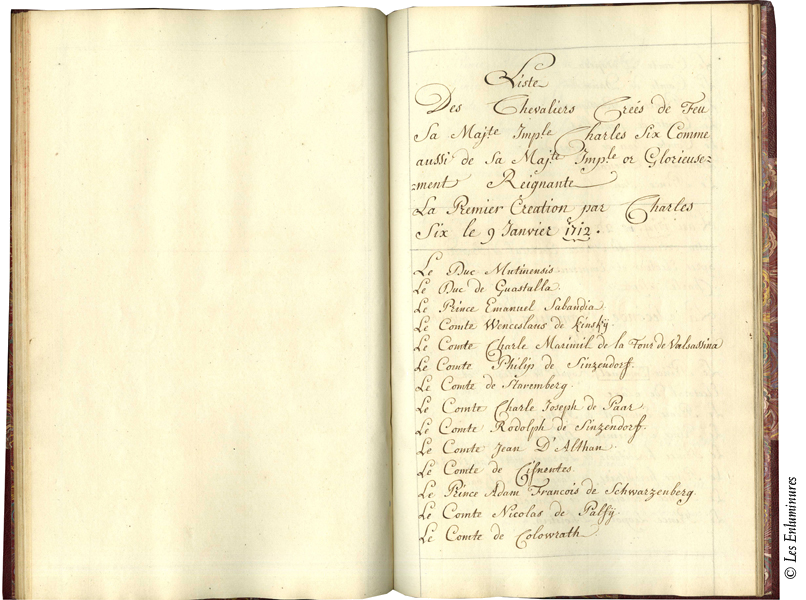 Liste
Des Chevaliers Créés de Feu
Sa Maj.te Imp.le Charles Six Comme
aussi de Sa Maj.te Imp.le or Glorieuse=
=ment Reignante
La Premier Creation par Charles
Six le 9 Janvier 1712.
Le Duc Mutinensis.
Le Duc de Guastalla.
Le Prince Emanuel Sabaudia.
Le Comte Wenceslaus de Kinskÿ.
Le Comte Charle Maximil de la Tour de Valsassina
Le Comte Philip de Sinzendorf.
Le Comte de Staremberg.
Le Comte Charle Joseph de Paar.
Le Comte Rodolph de Sinzendorf.
Le Comte Jean D'Althan.
Le Comte de Cifuentes.
Le Prince Adam Francois de Schwarzenberg.
Le Comte Nicolas de Palfÿ.
Le Comte de Colowrath.
© Les Enluminures